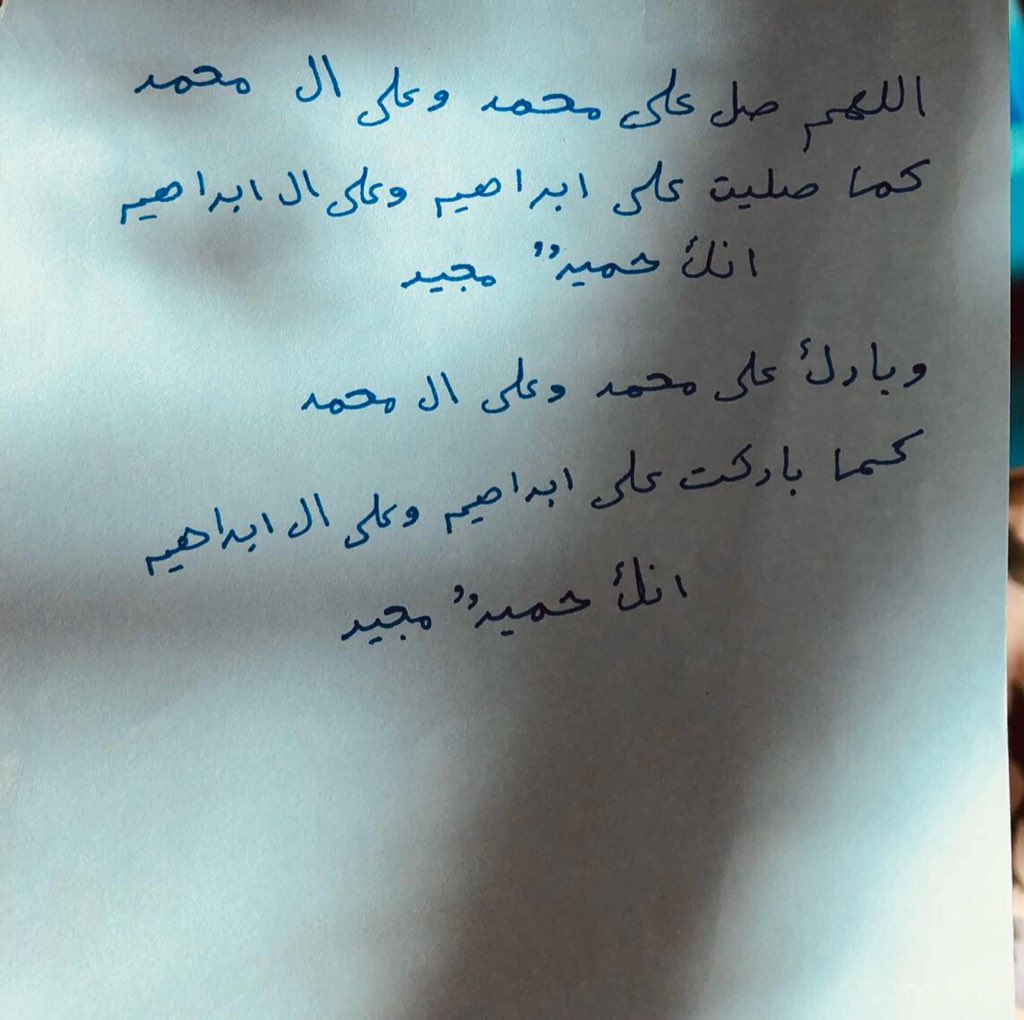 اللهم صل على محمد وعلى ال محمد
كما صليت على ابراهيم وعلى ال ابراهيم
انك حميدٌ مجيد
وبارك على محمد وعلى ال محمد
كما باركت على ابراهيم وعلى ال ابراهيم
انك حميدٌ مجيد